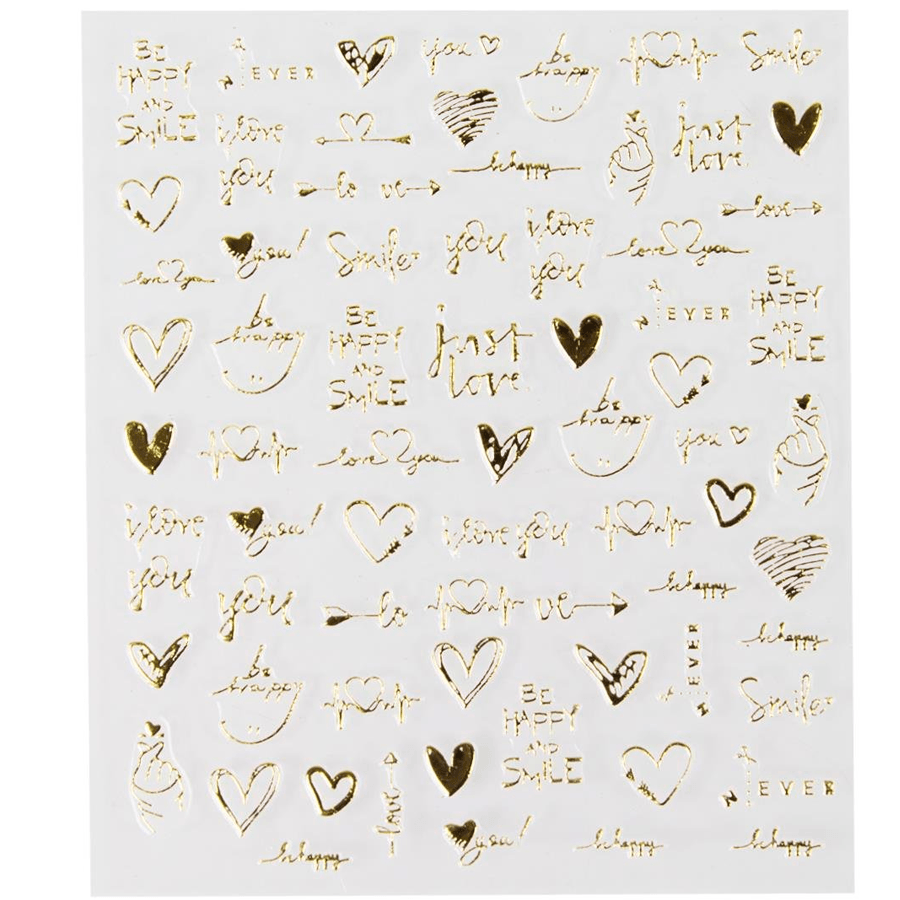 BE
HAPPY
AND
SMILE
NEVER
you
be
happy
Smile
i love
you
just
love
be happy
lo ve
love
love you
you!
Smile
you
i love
you
love you
NEVER
BE
HAPPY
AND
SMILE
be
happy
BE
HAPPY
AND
SMILE
just
love
be
happy
you
love you
i love
you
you!
i love you
be happy
you
lo ve
be happy
be
happy
NEVER
Smile
BE
HAPPY
AND
SMILE
love
NEVER
be happy
you!
be happy
be happy